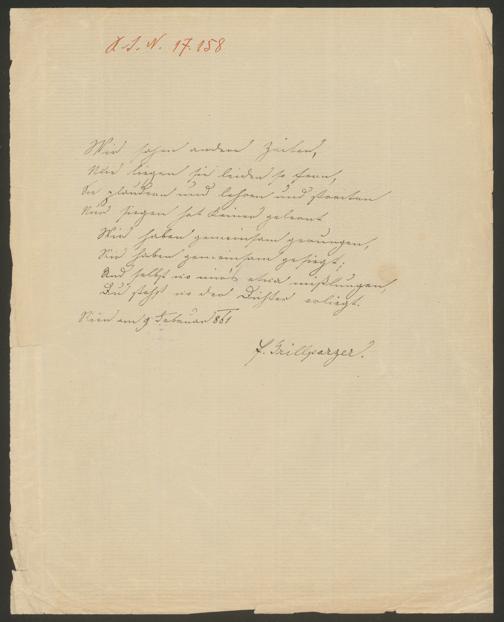 H. I. N. 17.158
Wir sahen andere Zeiten,
Nur liegen sie leider so fern,
Sie plaudern und lehren und streiten
Nur siegen hat Keiner gelernt
Wir haben gemeinsam gerungen,
Wir haben gemeinsam gesiegt;
Und selbst wo mir's etwa mißlungen,
Du stehst wo der Dichter erliegt.
Wien am 9 Februar 861
F. Grillparzer.